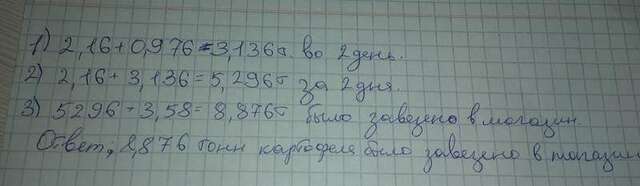 1) 2,16+0,976=3,136т. во 2день.
2) 2,16+3,136=5,296т за 2дня.
3) 5296-3,58=8,876т было завезено в магазин
Ответ, 8,876 тонн картофеля было завезено в магазин